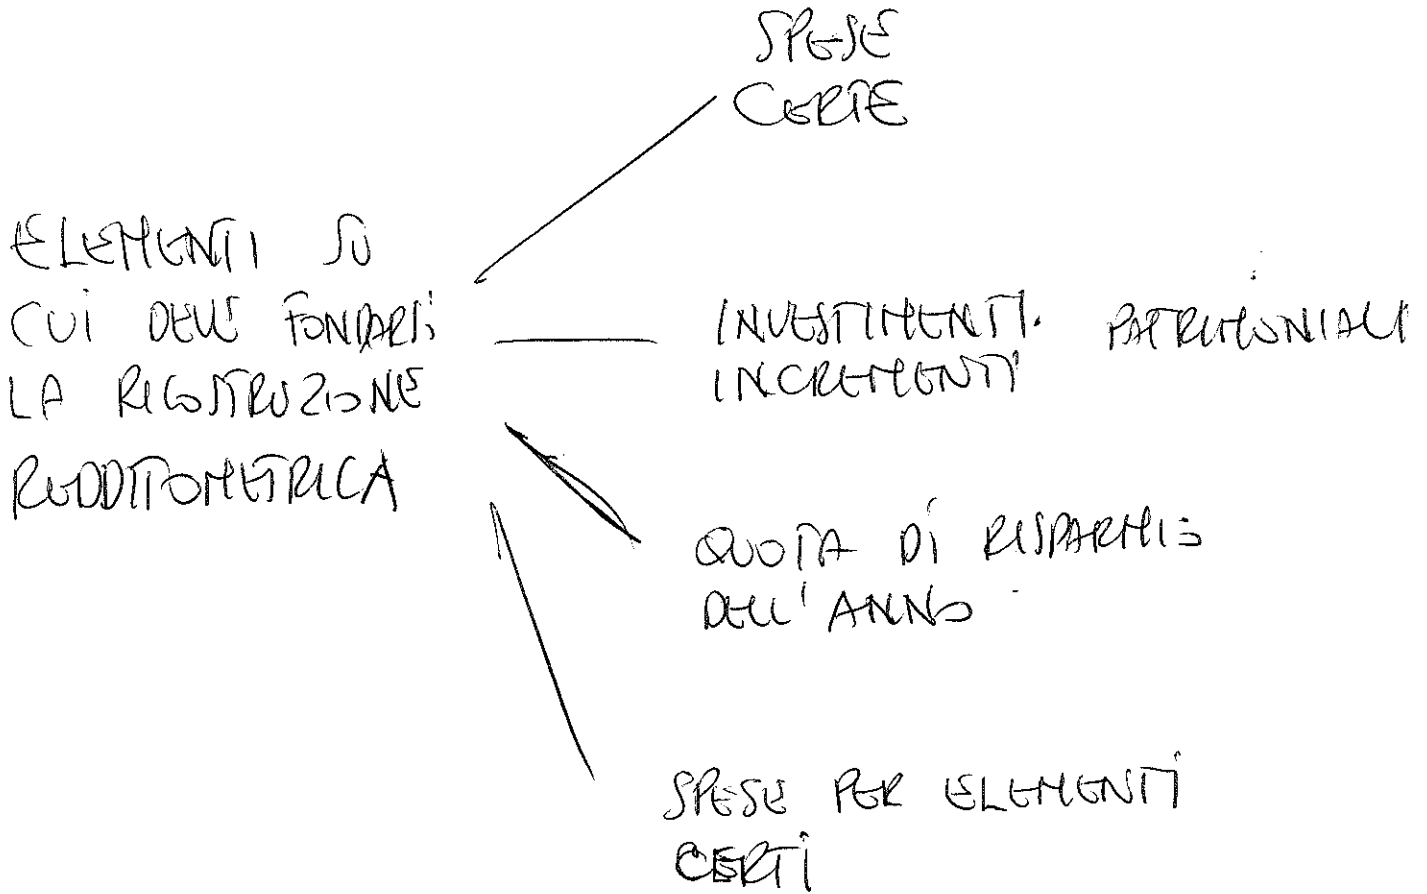 SPESE
CERTE
ELEMENTI SU
CUI DEVE FONDARSI
LA RICOSTRUZIONE
REDDITOMETRICA
INVESTIMENTI. PATRIMONIALI
INCREMENTI
QUOTA DI RISPARMIO
DELL'ANNO
SPESE PER ELEMENTI
CERTI